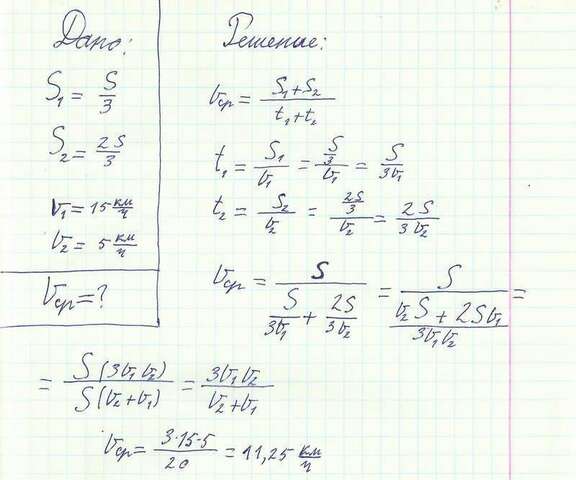 Дано:
S₁ = S/3
S₂ = 2S/3
v₁ = 15 км/ч
v₂ = 5 км/ч
vср = ?
Решение:
vср = (S₁ + S₂)/(t₁ + t₂)
t₁ = S₁/v₁ = (S/3)/v₁ = S/3v₁
t₂ = S₂/v₂ = (2S/3)/v₂ = 2S/3v₂
vср = S/(S/3v₁ + 2S/3v₂) = S/((v₂S + 2Sv₁)/3v₁v₂) =
= S(3v₁v₂)/S(v₂ + v₁) = 3v₁v₂/(v₂ + v₁)
vср = 3·15·5/20 = 11,25 км/ч